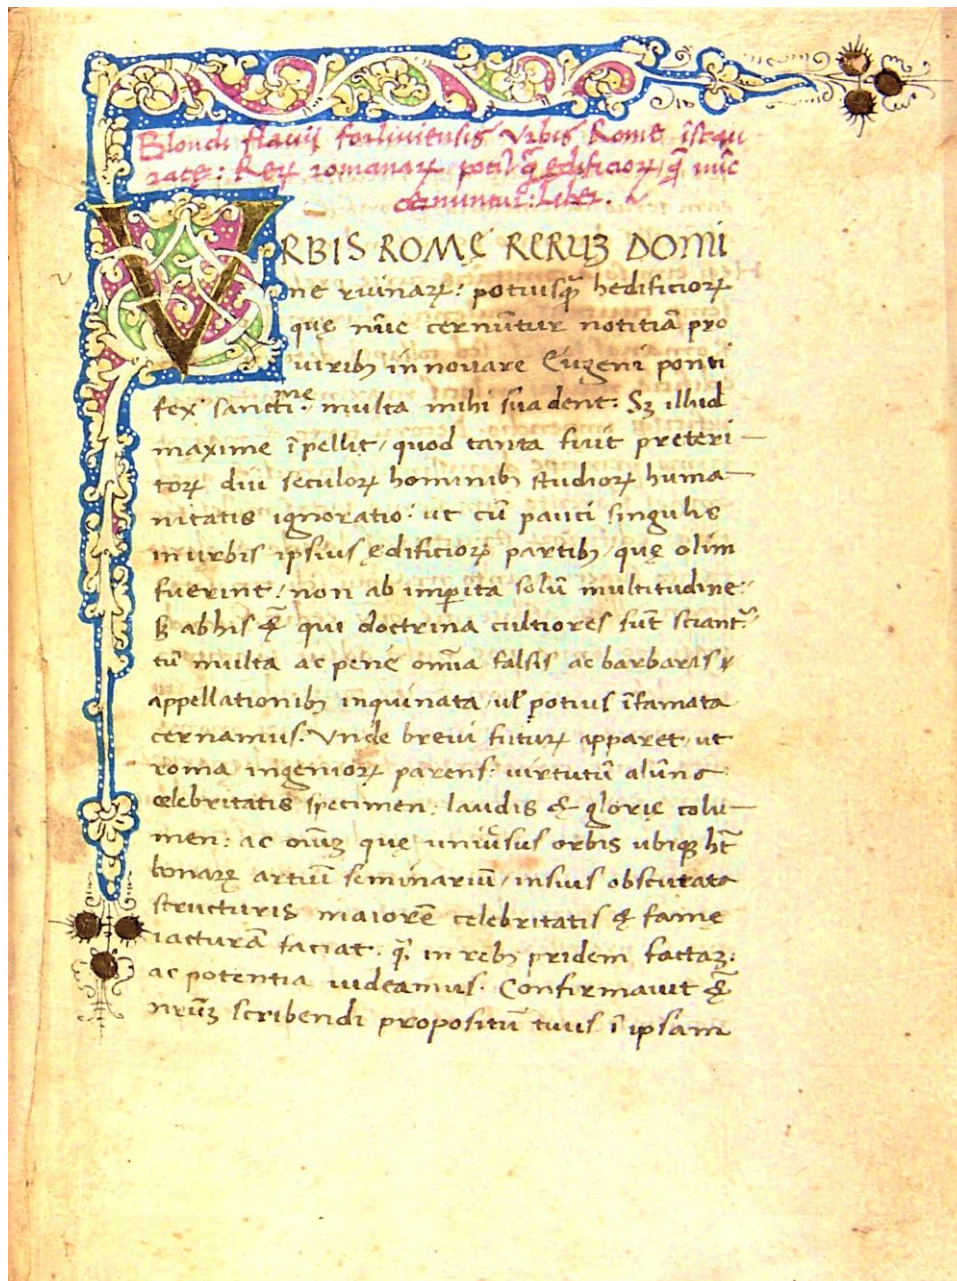 Blondi flavij forliviensis Vrbis Rome īstau
ratę: Reꝝ romanaꝝ potiꝰ q̄ edificioꝝ q̄ nūc
cernuntur: Liber.
VRBIS ROMĘ RERUꝫ DOMI
ne ruinaꝝ: potiusq̄ hedificioꝝ
quę nūc cernūtur notitiā pro
uiribꝫ innouare Eugeni ponti
fex sanctime. multa mihi suadent: Sꝫ illud
maxime īpellit / quod tanta fuit preteri—
toꝝ diu seculoꝝ hominibꝫ studioꝝ huma—
nitatis ignoratio: ut cū pauci singulis
inurbis ipsius ędificioꝝ partibꝫ / quę olim
fuerint / non ab imperita solū multitudine:
sꝫ abhis & qui doctrina cultiores sūt sciant:
tū multa ac pene omīa falsis ac barbaris
appellationibꝫ inquinata / uł potius īfamata
cernamus. Vnde breui futuꝝ apparet / ut
roma ingenioꝝ parens: uirtutū alūna
celebritatis specimen: laudis & glorię colu—
men: ac oīuꝫ quę uniūsus orbis ubiqꝫ hꝫt
bonaꝝ artiū seminariū / insuis obscurata
structuris maiorē celebritatis & famę
iacturā faciat. q̄ in rebꝫ pridem factaꝫ:
ac potentia uideamus. Confirmauit &
nr̄uꝫ scribendi propositū tuus ī ipsam